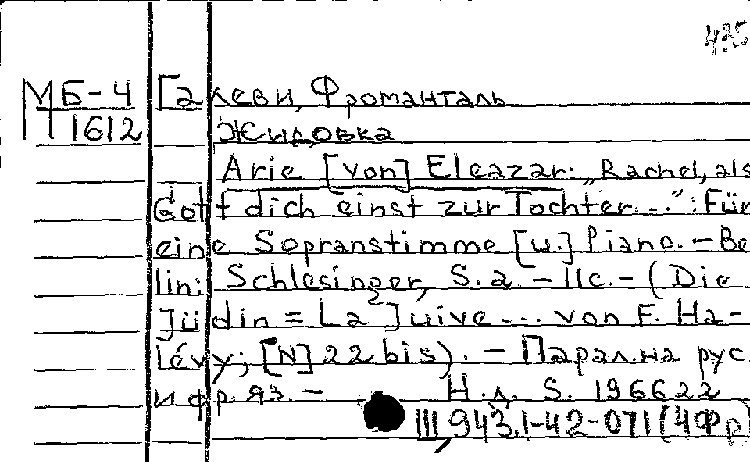 425
МБ-4 Галеви, Фроманталь
П 1612 Жидовка
Arie [von] Eleazar: „Rachel, als
Gott dich einst zur Tochter...": Für
eine Sopranstimme [u.] Piano. – Be
lin: Schlesinger, S.a. – 11c. – (Die
Jüdin = La Juive ... von F. Ha-
lévy; [N] 22 bis). – Парал. на рус
и фр. яз. – Н.д. S. 196622
III,943.1-42-071(4Фр)